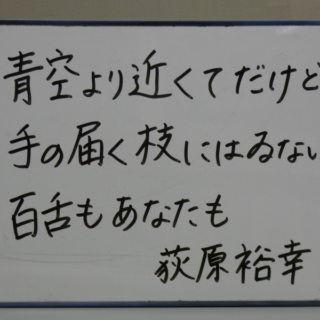 青空より近くてだけど
手の届く枝にはゐない
百舌もあなたも
荻原裕幸